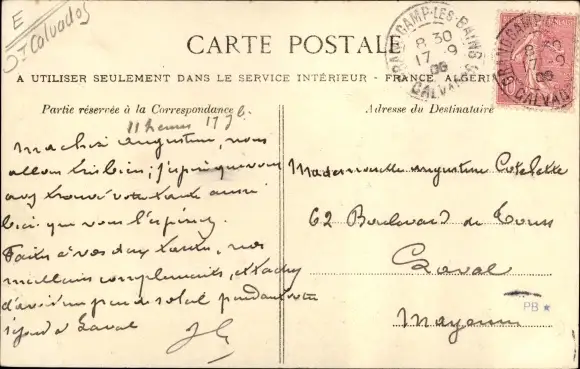 E
Calvados
CARTE POSTALE
A UTILISER SEULEMENT DANS LE SERVICE INTÉRIEUR - FRANCE, ALGÉRIE
GRANDCAMP-LES-BAINS
8 30
17 - 9
06
CALVADOS
GRANDCAMP
8
17 9
06
CALVADOS
Partie réservée à la Correspondance
Adresse du Destinataire
11 heures 17
Ma chère Augustine, nous
allons très bien ; j'espère que vous
avez trouvé votre tante aussi
bien que vous l'espériez.
Faites à vos deux tantes, nos
meilleurs compliments, et tachez
d'avoir un peu de soleil pendant votre
séjour à Laval
JG
Mademoiselle Augustine Cotelette
62 Boulevard de Tours
Laval
Mayenne
PB *